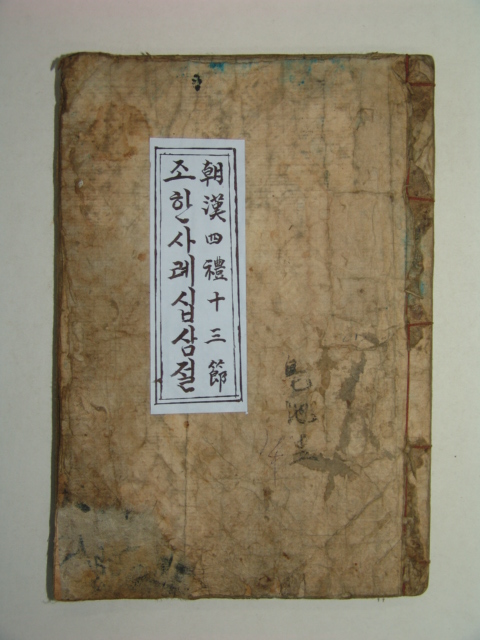 朝漢四禮十三節
조한사례십삼절